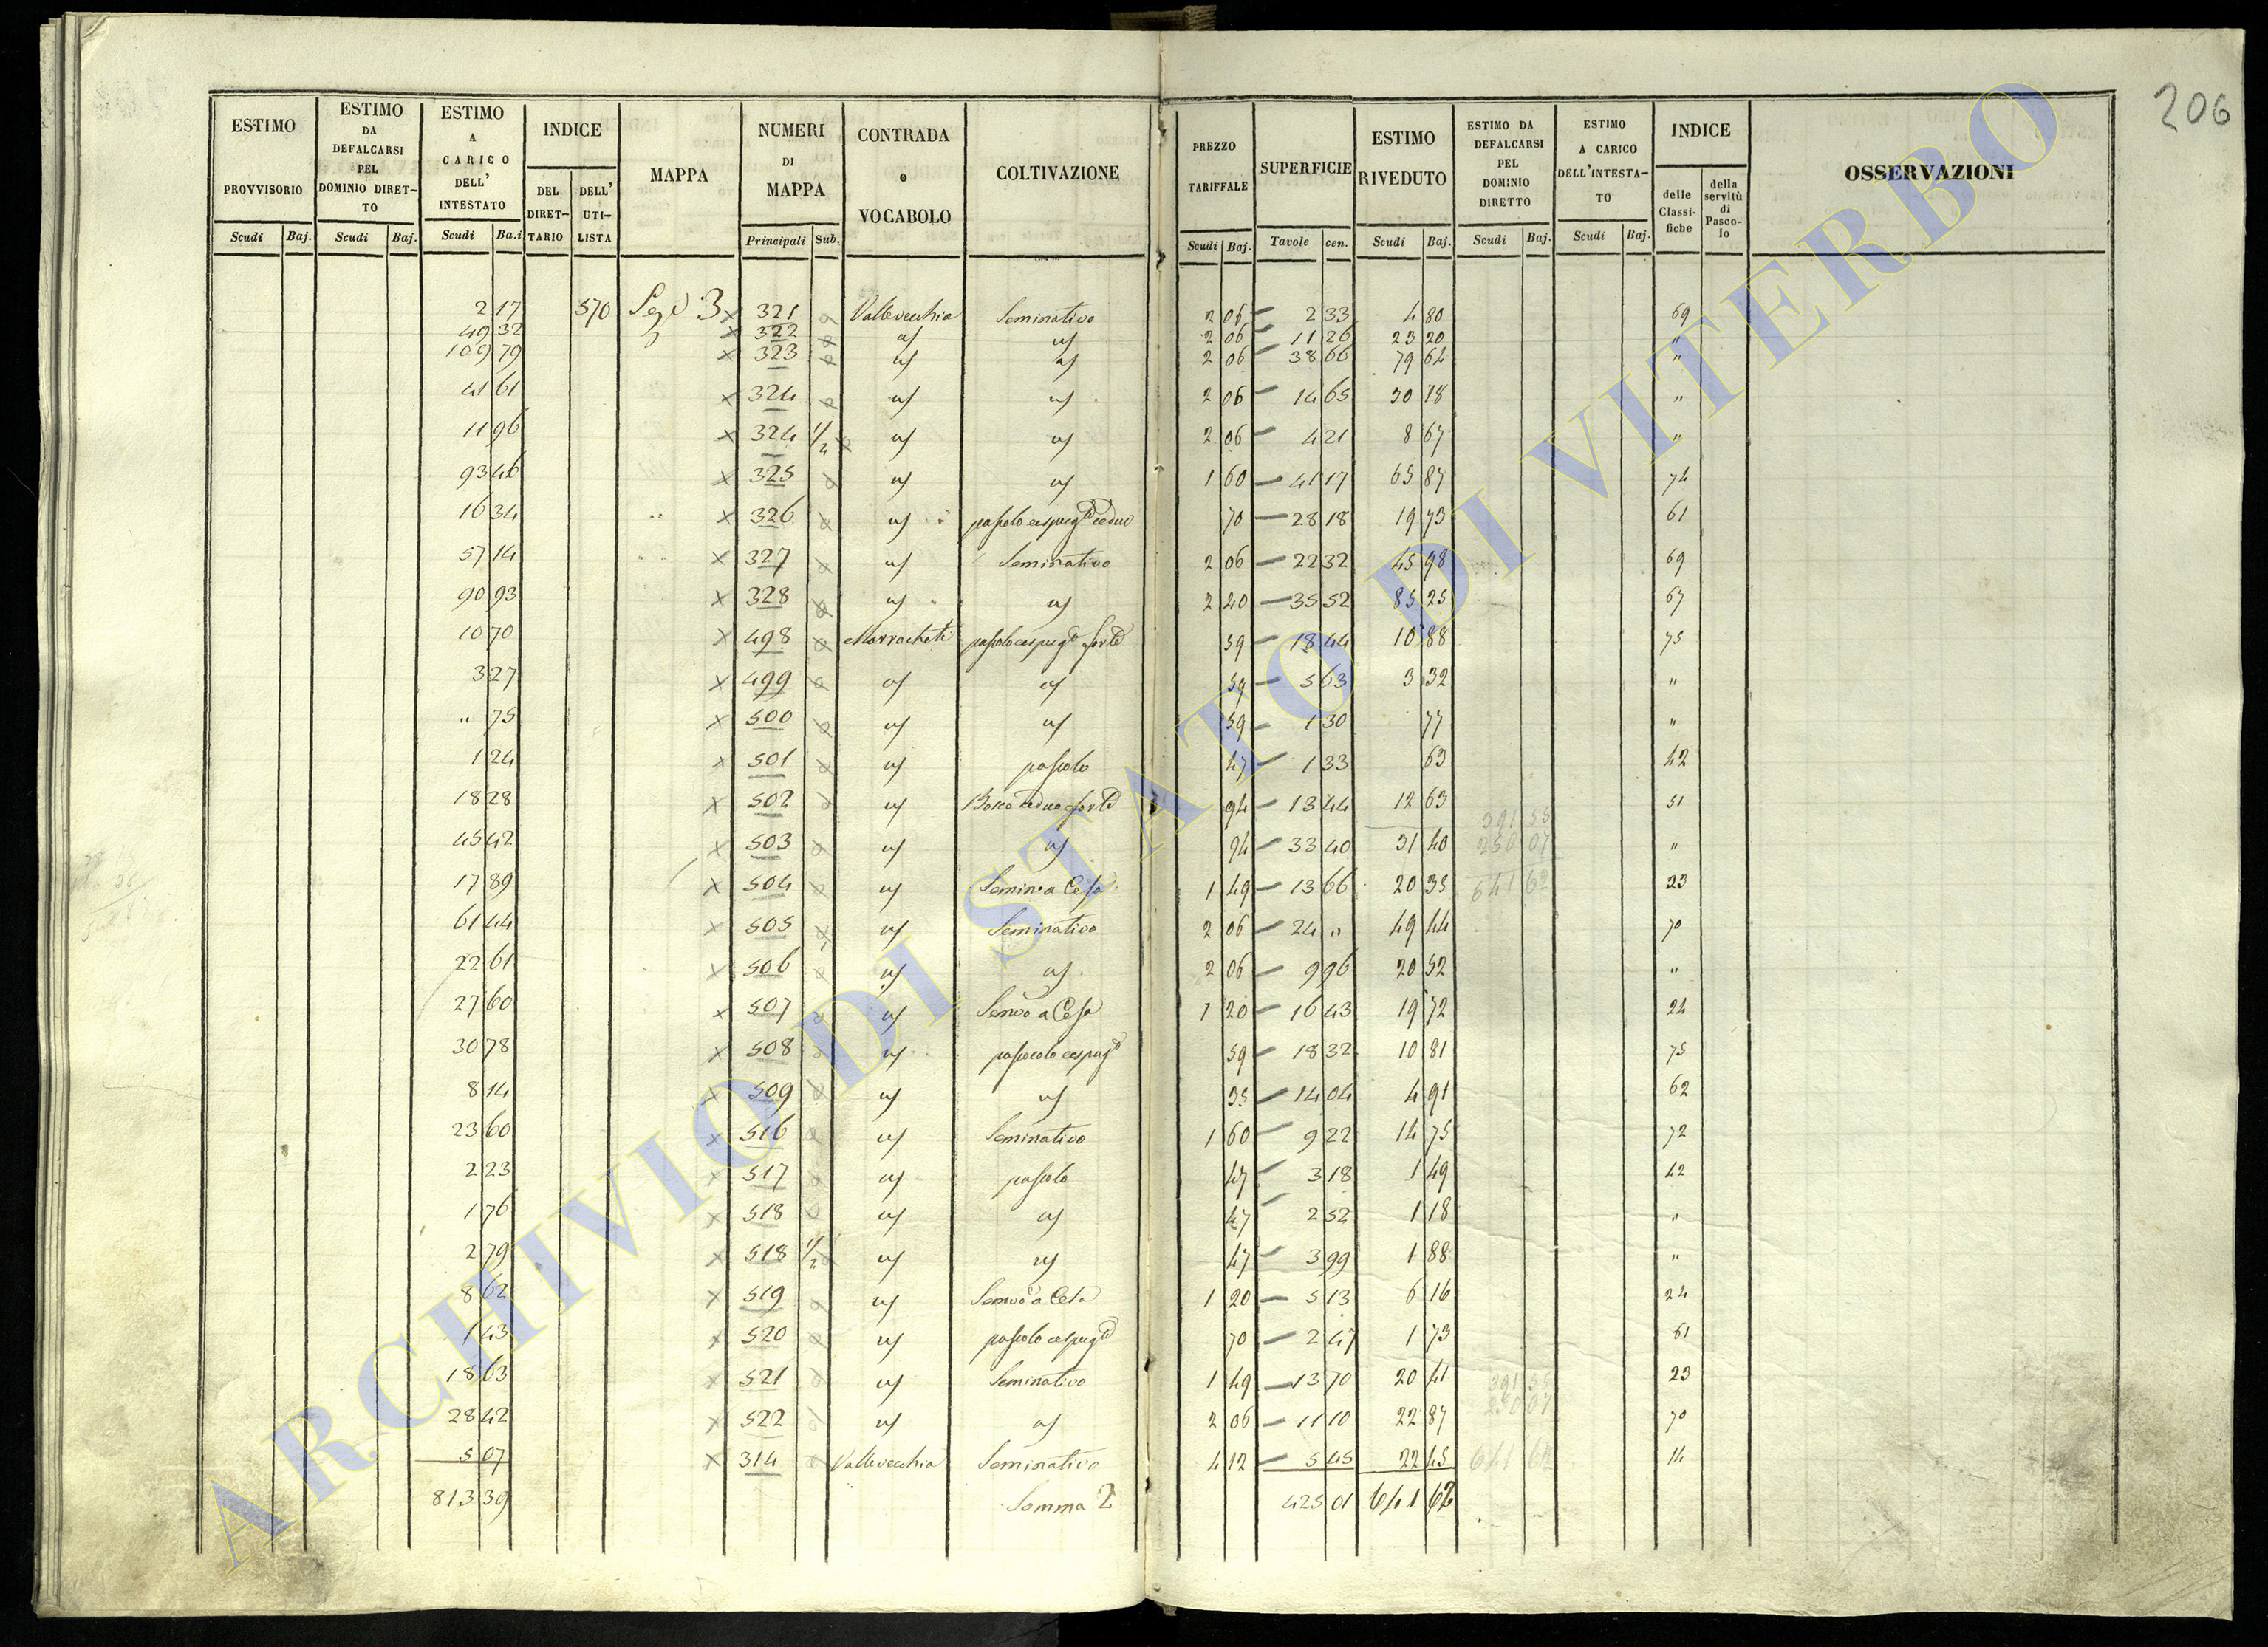 206
ESTIMO PROVVISORIO | ESTIMO DA DEFALCARSI PEL DOMINIO DIRETTO | ESTIMO A CARICO DELL' INTESTATO | INDICE | MAPPA | NUMERI DI MAPPA | CONTRADA o VOCABOLO | COLTIVAZIONE | PREZZO TARIFFALE | SUPERFICIE | ESTIMO RIVEDUTO | ESTIMO DA DEFALCARSI PEL DOMINIO DIRETTO | ESTIMO A CARICO DELL'INTESTATO | INDICE | OSSERVAZIONI
DEL DIRETTARIO | DELL' UTILISTA | delle Classifiche | della servitù di Pascolo
Scudi | Baj. | Scudi | Baj. | Scudi | Ba.i | Principali | Sub. | Scudi | Baj. | Tavole | cen. | Scudi | Baj. | Scudi | Baj. | Scudi | Baj.
2 17 | 570 | 3 | x 321 | Vallevecchia | Seminativo | 2 06 | 2 33 | 4 80 | 69
49 32 | x 322 | 2 06 | 11 26 | 23 20 | "
109 79 | x 323 | 2 06 | 38 66 | 79 64 | "
41 61 | x 324 | 2 06 | 14 65 | 30 18 | "
11 96 | x 324 1/2 | 2 06 | 4 21 | 8 67 | "
93 46 | x 325 | 1 60 | 41 17 | 65 87 | 74
16 34 | x 326 | 70 | 28 18 | 19 73 | 61
57 14 | x 327 | Seminativo | 2 06 | 22 32 | 45 98 | 69
90 93 | x 328 | 2 40 | 35 52 | 85 25 | 67
10 70 | x 498 | 59 | 18 44 | 10 88 | 75
3 27 | x 499 | 59 | 5 63 | 3 32 | "
" 75 | x 500 | 59 | 1 30 | 77 | "
1 24 | x 501 | pascolo | 47 | 1 33 | 63 | 42
18 28 | x 502 | Bosco ceduo forte | 94 | 13 44 | 12 63 | 51
45 42 | x 503 | 94 | 33 40 | 31 40 | "
17 89 | x 504 | 1 49 | 13 66 | 20 35 | 641 62 | 23
61 44 | x 505 | Seminativo | 2 06 | 24 " | 49 44 | 70
22 61 | x 506 | 2 06 | 9 96 | 20 52 | "
27 60 | x 507 | 1 20 | 16 43 | 19 72 | 24
30 78 | x 508 | 59 | 18 32 | 10 81 | 75
8 14 | x 509 | 35 | 14 04 | 4 91 | 62
23 60 | x 516 | Seminativo | 1 60 | 9 22 | 14 75 | 72
2 23 | x 517 | pascolo | 47 | 3 18 | 1 49 | 42
1 76 | x 518 | 47 | 2 52 | 1 18 | "
2 79 | x 518 1/2 | 47 | 3 99 | 1 88 | "
8 62 | x 519 | 1 20 | 5 13 | 6 16 | 24
1 43 | x 520 | 70 | 2 47 | 1 73 | 61
18 63 | x 521 | Seminativo | 1 49 | 13 70 | 20 41 | 23
28 42 | x 522 | 2 06 | 11 10 | 22 87 | 70
5 07 | x 314 | Vallevecchia | Seminativo | 4 12 | 5 45 | 22 45 | 641 62 | 14
813 39 | Somma 2 | 425 01 | 641 62
ARCHIVIO DI STATO DI VITERBO